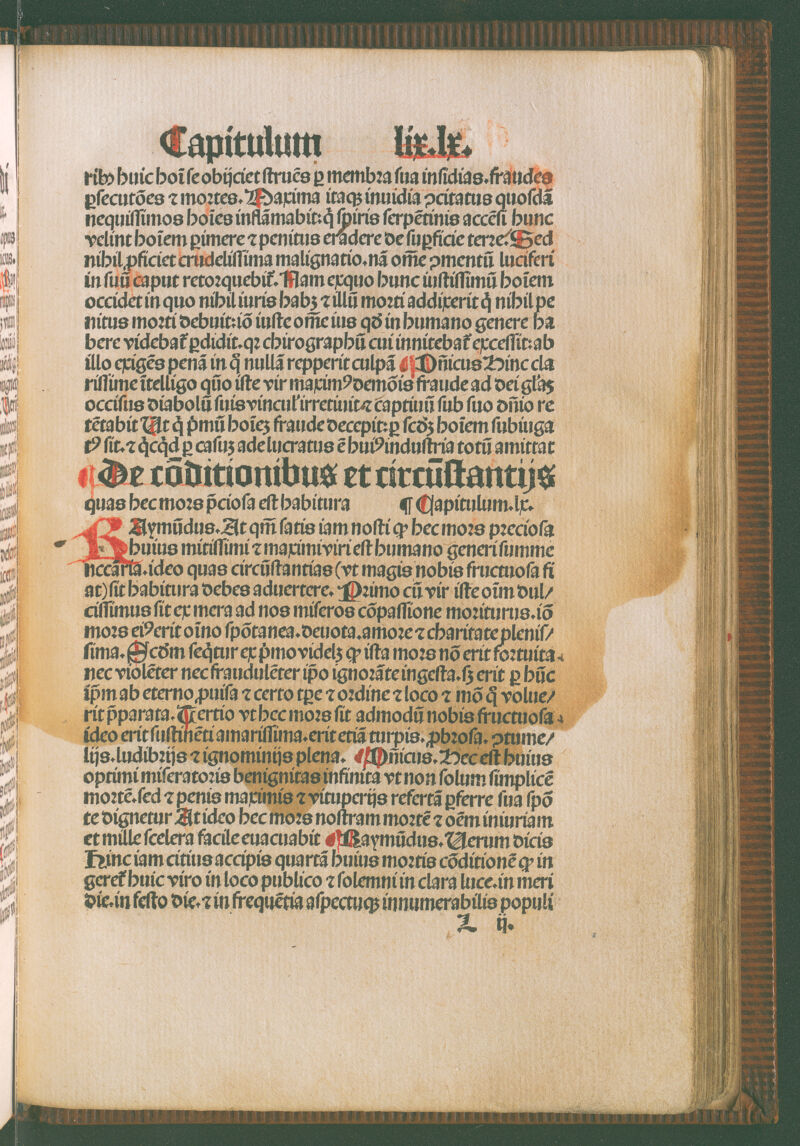 Capitulum lix.lx.
ribꝰ huic hoĩ se obijciet struẽs ꝑ membra sua insidias.fraudes
ꝑsecutões ⁊ mortes. Maxima itaqꝫ inuidia ꝯcitatus quosdã
nequissimos hoĩes inflãmabit:q̇ spiris serpẽtinis accẽsi hunc
velint hoĩem ꝑimere ⁊ penitus eradere de suꝑficie terre. Sed
nihil ꝓficiet crudelissima malignatio.nã om̃e ꝯmentũ luciferi
in suũ caput retorquebit̃. Nam exquo hunc iustissimũ hoĩem
occidet in quo nihil iuris habꝫ ⁊ illũ morti addixerit q̇ nihil pe
nitus morti debuit:iõ iuste om̃e ius qd̃ in humano genere ha
bere videbat̃ ꝑdidit.qꝛ chirographũ cui innitebat̃ excessit:ab
illo exigẽs penã in q̊ nullã repperit culpã ¶ Dñicus Hinc cla
rissime ĩtelligo qũo iste vir maximꝰ demõis fraude ad dei gl̃aꝫ
occisus diabolũ suis vincul' irretiuit ⁊ captiuũ sub suo dñio re
tẽtabit Ut q̇ p̃mũ hoĩeꝫ fraude decepit:ꝑ scd̃ꝫ hoĩem subiuga
tꝰ sit.⁊ q̇cq̇d ꝑ casuꝫ ade lucratus ẽ huiꝰ industria totũ amittat
¶ De cõditionibus et circũstantijs
quas hec mors p̃ciosa est habitura ¶ Capitulum.lx.
RAymũdus. At qm̃ satis iam nosti ꝙ hec mors preciosa
huius mitissimi ⁊ maximi viri est humano generi summe
nccãria.ideo quas circũstantias (vt magis nobis fructuosa fi
at) sit habitura debes aduertere. Primo cũ vir iste oĩm dul/
cissimus sit ex mera ad nos miseros cõpassione moriturus.iõ
mors eiꝰ erit oĩno spõtanea.deuota.amore ⁊ charitate plenis/
sima. Scd̃m seq̇tur ex p̃mo videlꝫ ꝙ ista mors nõ erit fortuita.
nec violẽter nec fraudulẽter ip̃o ignorãte ingesta.sꝫ erit ꝑ hũc
ip̃m ab eterno ꝓuisa ⁊ certo tp̃e ⁊ ordine ⁊ loco ⁊ mõ q̊ volue/
rit p̃parata. Tertio vt hec mors sit admodũ nobis fructuosa.
ideo erit sustinẽti amarissima.erit etiã turpis.ꝓbrosa.ꝯtume/
lijs.ludibrijs ⁊ ignominijs plena. ¶ Dñicus. Hec est huius
optimi miseratoris benignitas infinita vt non solum simplicẽ
mortẽ.sed ⁊ penis maximis ⁊ vituperijs refertã ꝑferre sua spõ
te dignetur At ideo hec mors nostram mortẽ ⁊ oẽm iniuriam
et mille scelera facile euacuabit ¶ Raymũdus. Verum dicis
Hinc iam citius accipis quartã huius mortis cõditionẽ ꝙ in
geret̃ huic viro in loco publico ⁊ solemni in clara luce.in meri
die.in festo die.⁊ in frequẽtia aspectuqꝫ innumerabilis populi
L ij.